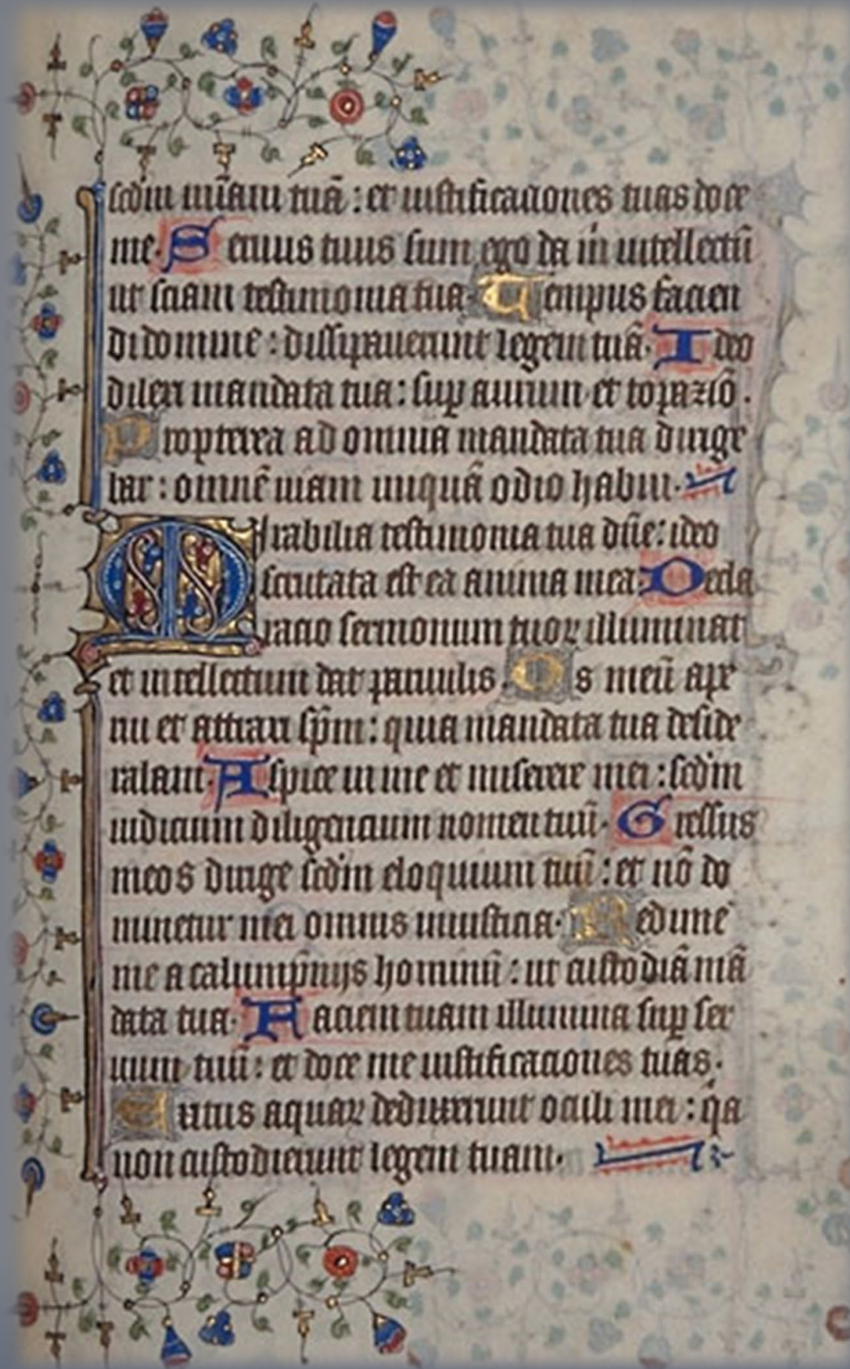 scd̄m mīam tuā : et iustificationes tuas doce
me. Seruus tuus sum ego da m̄ intellectū
ut sciam testimonia tua. Tempus facien
di domine : dissipauerunt legem tuā. Ideo
dilexi mandata tua : sup aurum et topaziō.
Propterea ad omnia mandata tua dirige
bar : omnē uiam iniquā odio habui.
Mirabilia testimonia tua dn̄e : ideo
scrutata est ea anima mea. Decla
racio sermonum tuoꝝ illuminat
et intellectum dat paruulis. Os meū ape
rui et attraxi sp̄m : quia mandata tua deside
rabam. Aspice in me et miserere mei : scd̄m
iudicium diligencium nomen tuū. Gressus
meos dirige scd̄m eloquium tuū : et nō do
minetur mei omnis iniusticia. Redime
me a calumpnijs hominū : ut custodiā mā
data tua. Faciem tuam illumina sup ser
uum tuū : et doce me iustificationes tuas.
Exitus aquaꝝ deduxerunt oculi mei : qa
non custodierunt legem tuam.